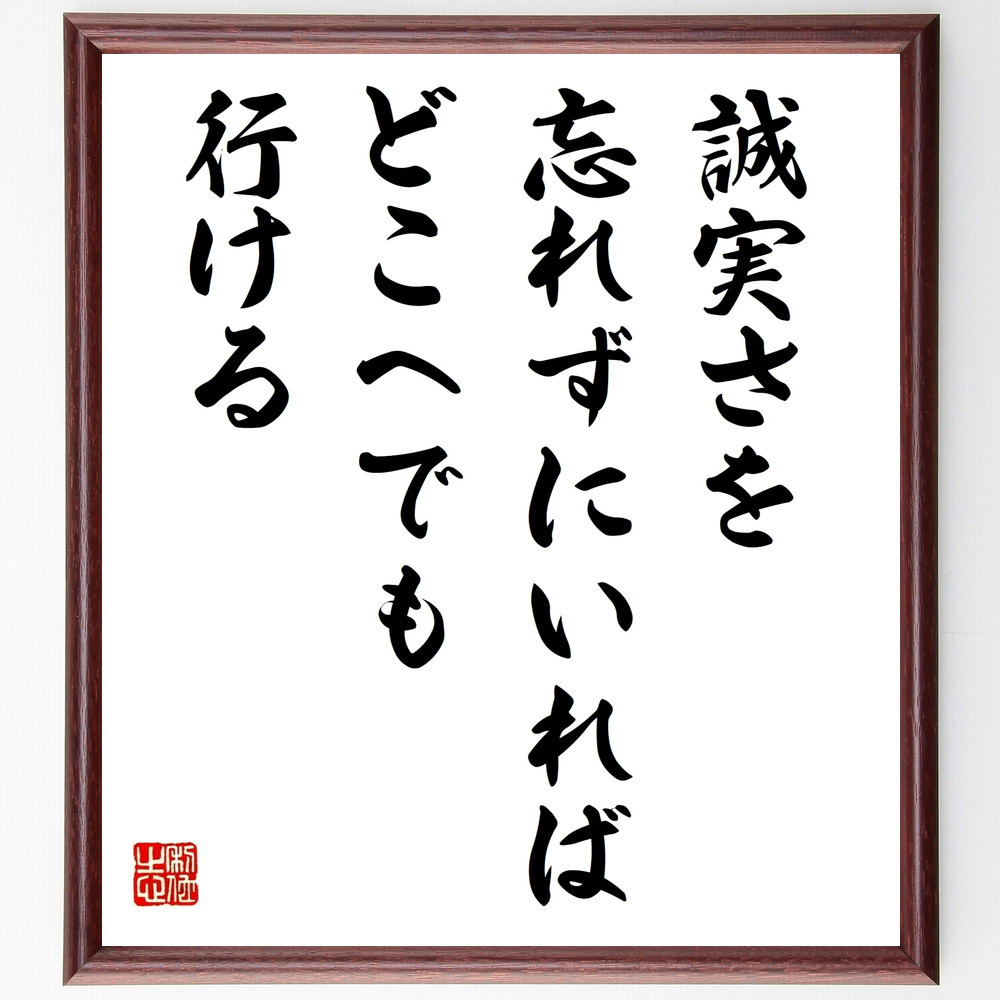 誠実さを
忘れずにいれば
どこへでも
行ける